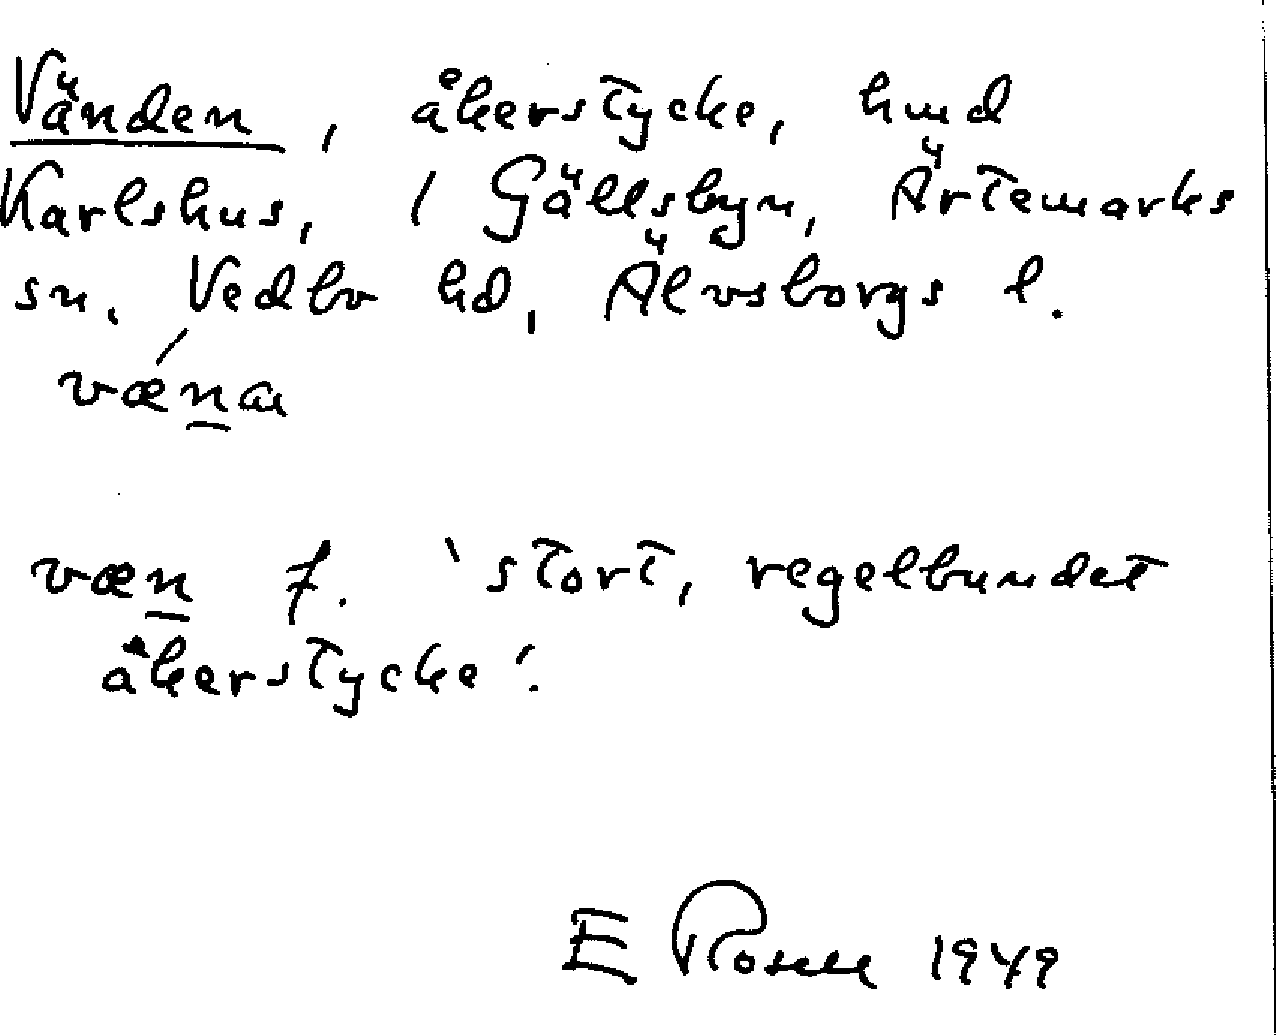 Vänden, åkerstycke, hmd
Karlshus, 1 Gällsbyn, Ärtemarks
sn. Vedbo hd, Älvsborgs l.
væ´na
væn f. 'stort, regelbundet
åkerstycke'.
E Rosell 1949